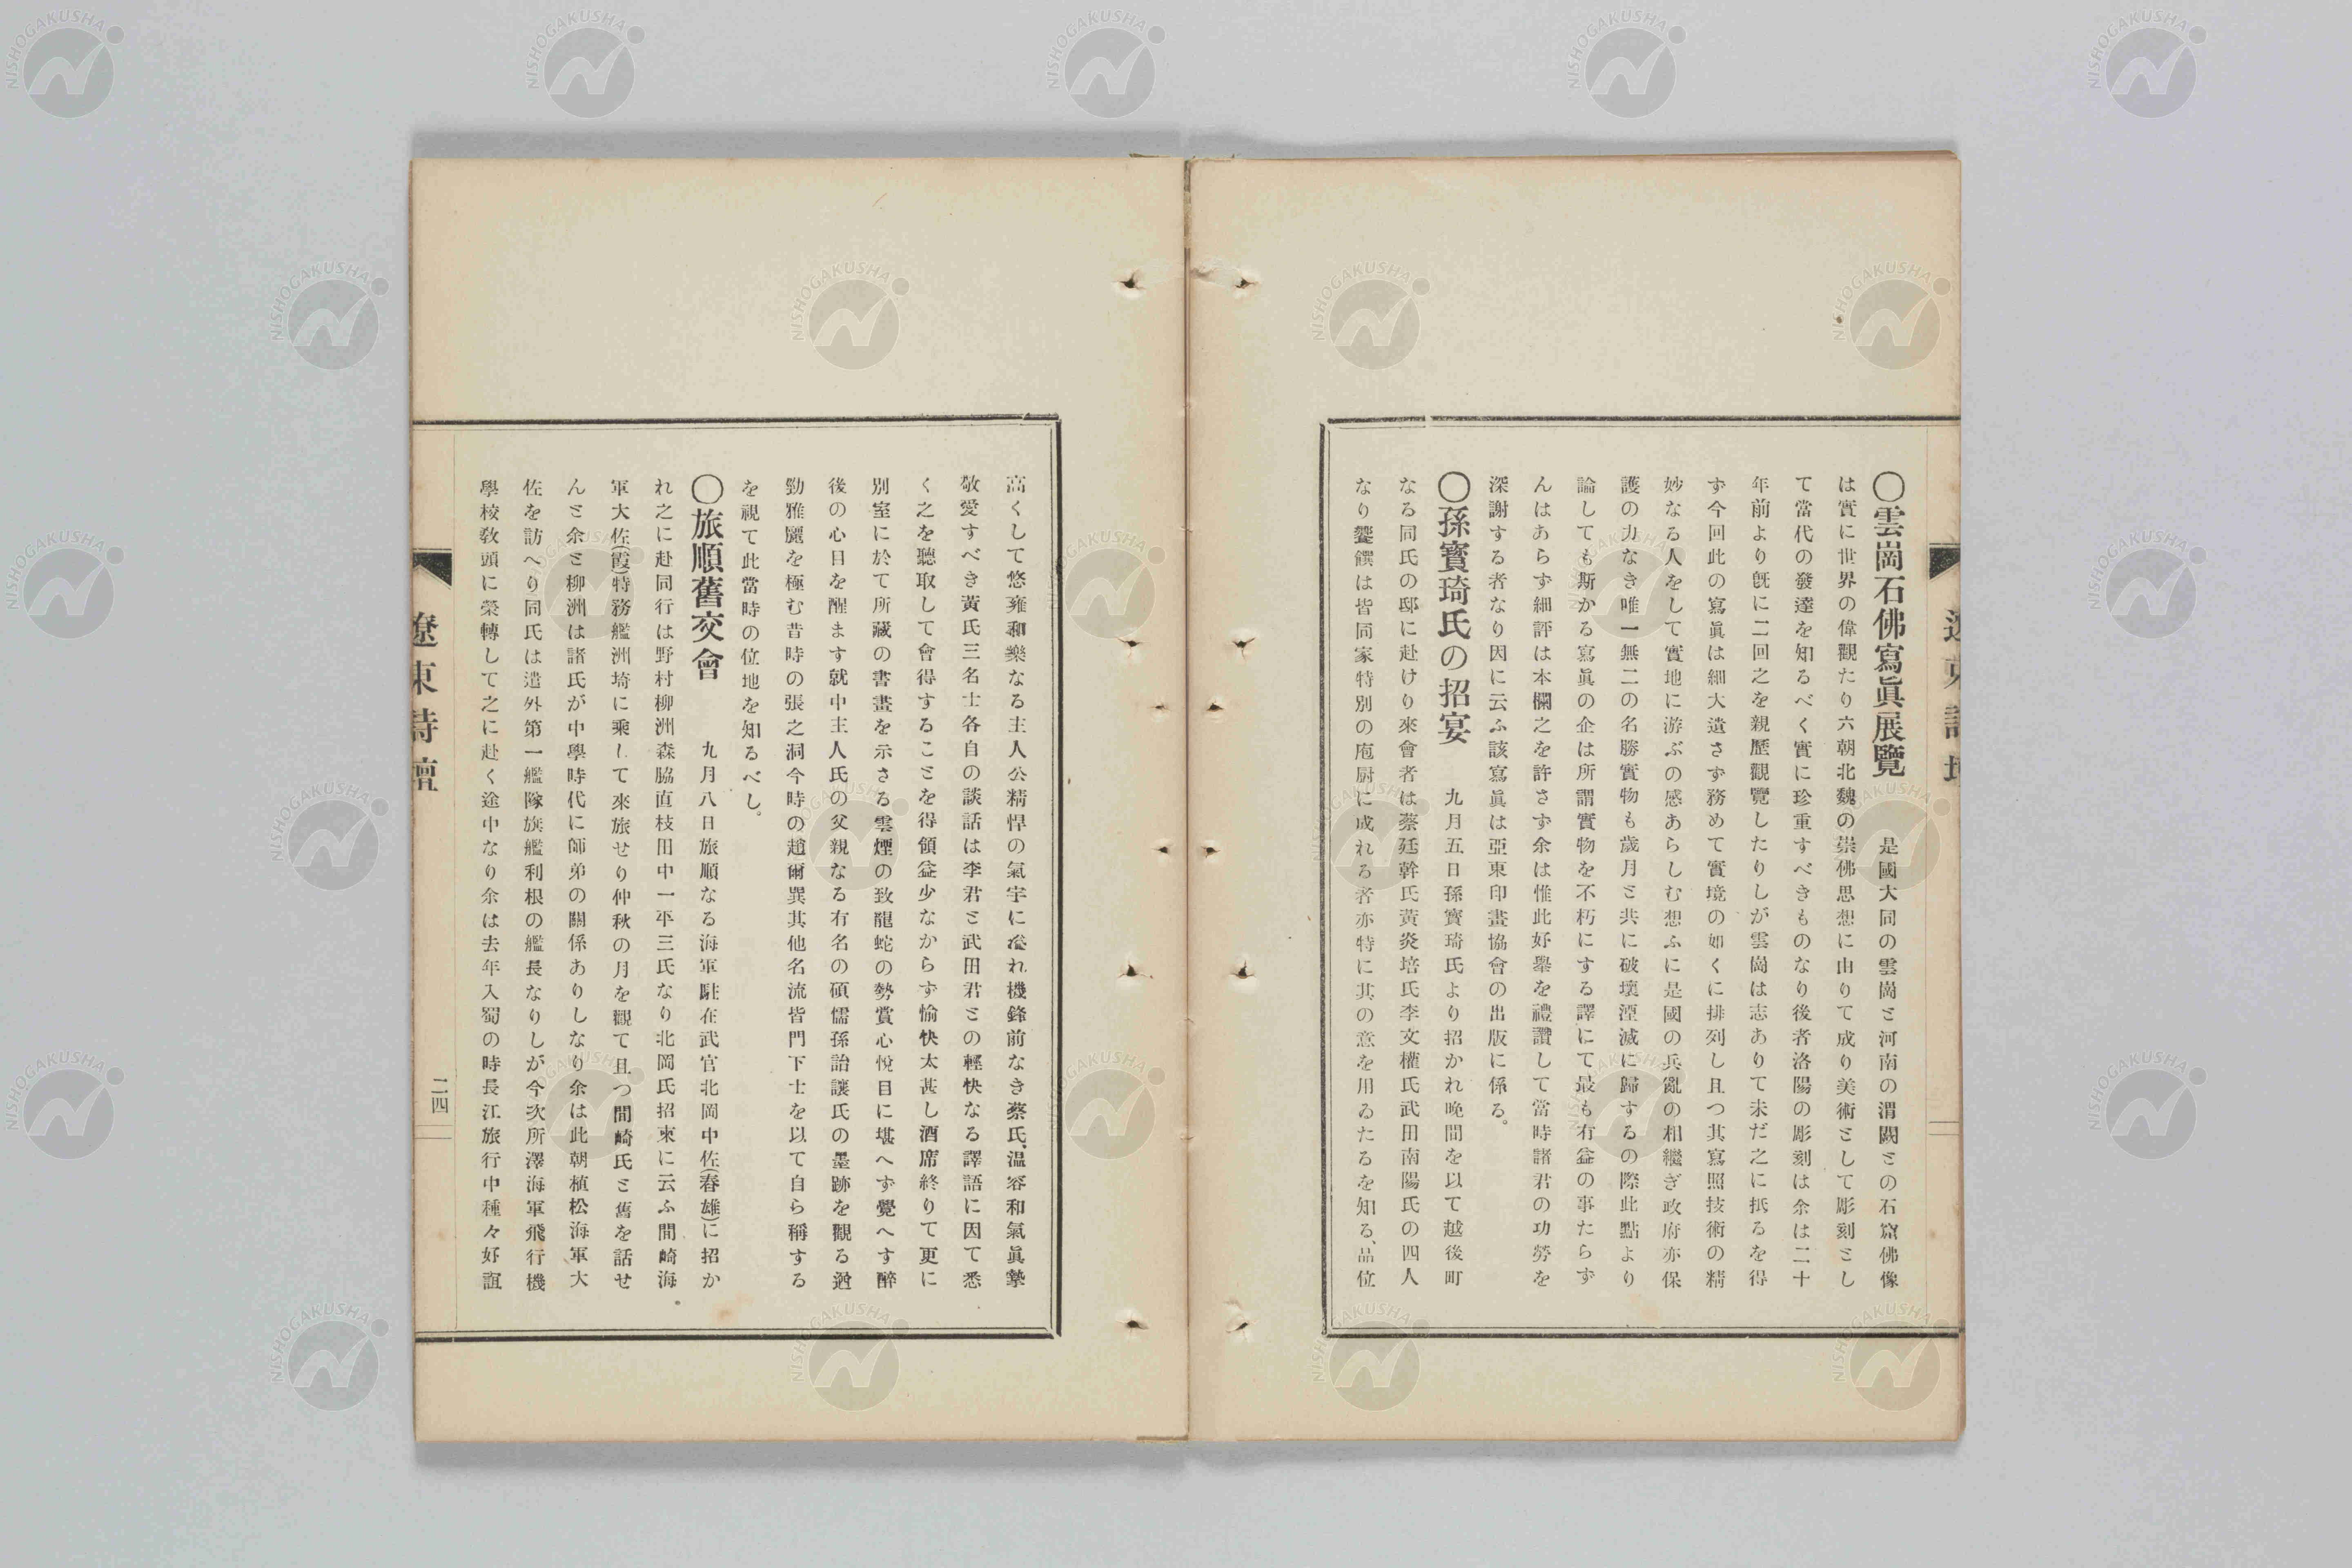 〇雲崗石佛寫眞展覽　是國大同の雲崗と河南の渭闕との石窟佛像
は實に世界の偉觀たり六朝北魏の崇佛思想に由りて成り美術として彫刻とし
て當代の發達を知るべく實に珍重すべきものなり後者洛陽の彫刻は余は二十
年前より旣に二回之を親歷觀覽したりしが雲崗は志ありて未だ之に抵るを得
ず今回此の寫眞は細大遺さず務めて實境の如くに排列し且つ其寫照技術の精
妙なる人をして實地に游ぶの感あらしむ想ふに是國の兵亂の相繼ぎ政府亦保
護の力なき唯一無二の名勝實物も歲月と共に破壞湮滅に歸するの際此點より
論しても斯かる寫眞の企は所謂實物を不朽にする譯にて最も有益の事たらず
んはあらず細評は本欄之を許さず余は惟此好舉を禮讚して當時諸君の功勞を
深謝する者なり因に云ふ該寫眞は亞東印畫協會の出版に係る。
〇孫寳琦氏の招宴　九月五日孫寳琦氏より招かれ晚間を以て越後町
なる同氏の邸に赴けり來會者は蔡廷幹氏黃炎培氏李文權氏武田南陽氏の四人
なり饗饌は皆同家特別の庖厨に成れる者亦特に其の意を用ゐたるを知る、品位
高くして悠雍和樂なる主人公精悍の氣宇に溢れ機鋒前なき蔡氏、溫容和氣眞摯
敬愛すべき黃氏三名士各自の談話は李君と武田君との輕快なる譯語に因て悉
く之を聽取して會得することを得領益少なからず愉快太甚し酒席終りて更に
別室に於て所藏の書畫を示さる雲煙の致龍蛇の勢賞心悅目に堪へず覺へす醉
後の心目を醒ます就中主人氏の父親なる有名の碩儒孫詒讓氏の墨跡を觀る遒
勁雅麗を極む昔時の張之洞今時の趙爾巽其他名流皆門下士を以て自ら稱する
を視て此當時の位地を知るべし。
〇旅順舊交會　九月八日旅順なる海軍駐在武官北岡中佐(春雄)に招か
れ之に赴同行は野村柳洲森脇直枝田中一平三氏なり北岡氏招柬に云ふ間崎海
軍大佐(霞)特務艦洲埼に乘して來旅せり仲秋の月を觀て且つ間崎氏と舊を話せ
んと余と柳洲は諸氏が中學時代に師弟の關係ありしなり余は此朝植松海軍大
佐を訪へり同氏は遣外第一艦隊旗艦利根の艦長なりしが今次所澤海軍飛行機
學校敎頭に榮轉して之に赴く途中なり余は去年入蜀の時長江旅行中種々好誼
遼東詩壇
二四